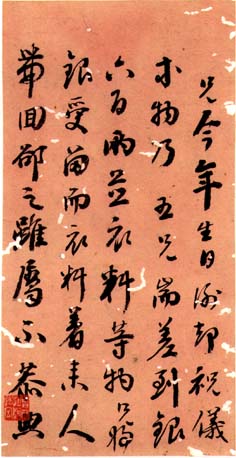 兄今年生日謝却祝儀
物乃五兄耑差到銀
六百兩並衣料等物只將
銀受留而衣料着來人
帶回郤之雖屬不恭然